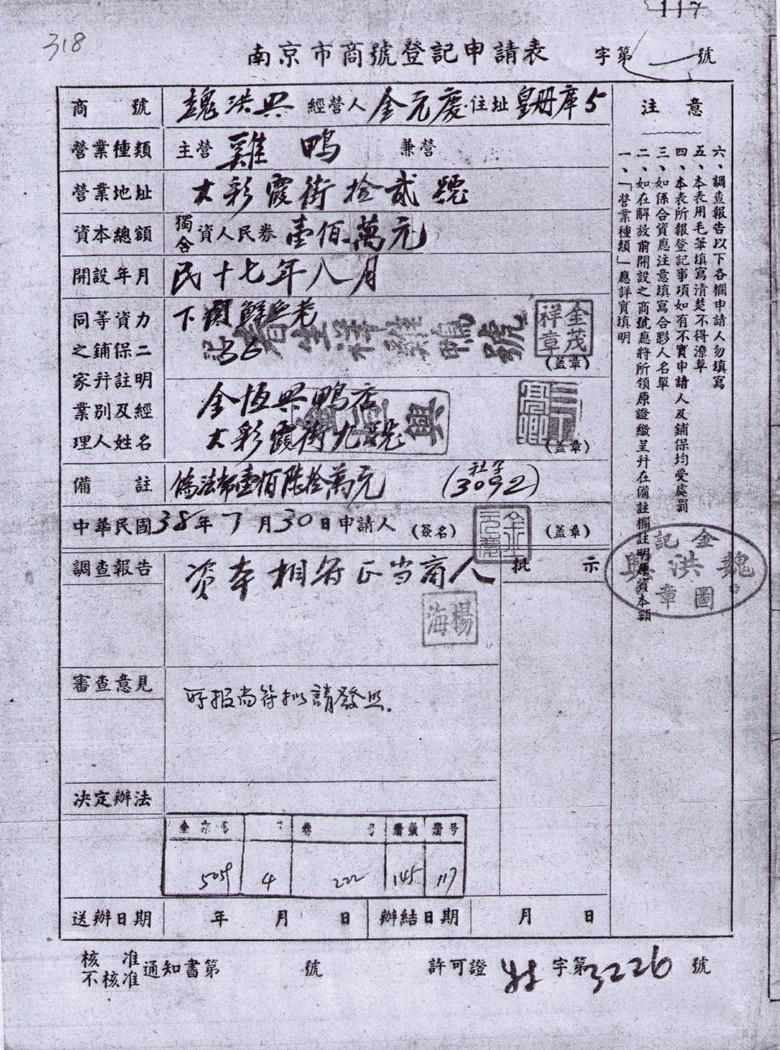 117
318
南京市商號登記申請表 字第 號
商號 魏洪興 經營人 金元慶 住址 皇册庫5
營業種類 主營 雞鴨 兼營
營業地址 大彩霞街拾貳號
資本總額 獨合資人民券 壹佰萬元
開設年月 民十七年八月
同等資力之家鋪保二業幷註明理人別及經姓名
下關鮮魚巷
36
金茂祥章
(蓋章)
金恆興鴨店
大彩霞街九號
(蓋章)
備註 僞法幣壹佰陸拾萬元 (社字3092)
中華民國38年7月30日申請人 (簽名) 金元慶 (蓋章)
調查報告 资本相符正当商人
楊海
批示
審查意見 所报尚符拟請發照.
决定辦法
全宗号 卷号 册号
505 4 222 145 117
送辦日期 年 月 日 辦結日期 月 日
核准 不核准 通知書第 號 許可證 字第3226 號
注意
一、「營業種類」應詳實填明
二、如在解放前開設之商號應將所領原證繳呈幷在備註欄註明原資本額
三、如係合資應注意填寫合夥人名單
四、本表所報登記事項如有不實申請人及鋪保均受處罰
五、本表用毛筆填寫清楚不得潦草
六、調查報告以下各欄申請人勿填寫
金記
魏洪興
圖章